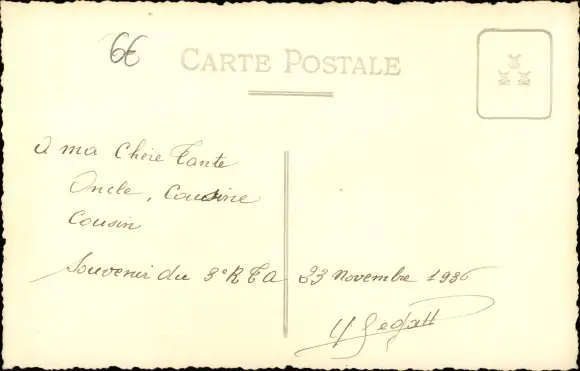 6€
CARTE POSTALE
A ma Chère Tante
Oncle, Cousine
Cousin
Souvenir du 3e RTA 23 Novembre 1936